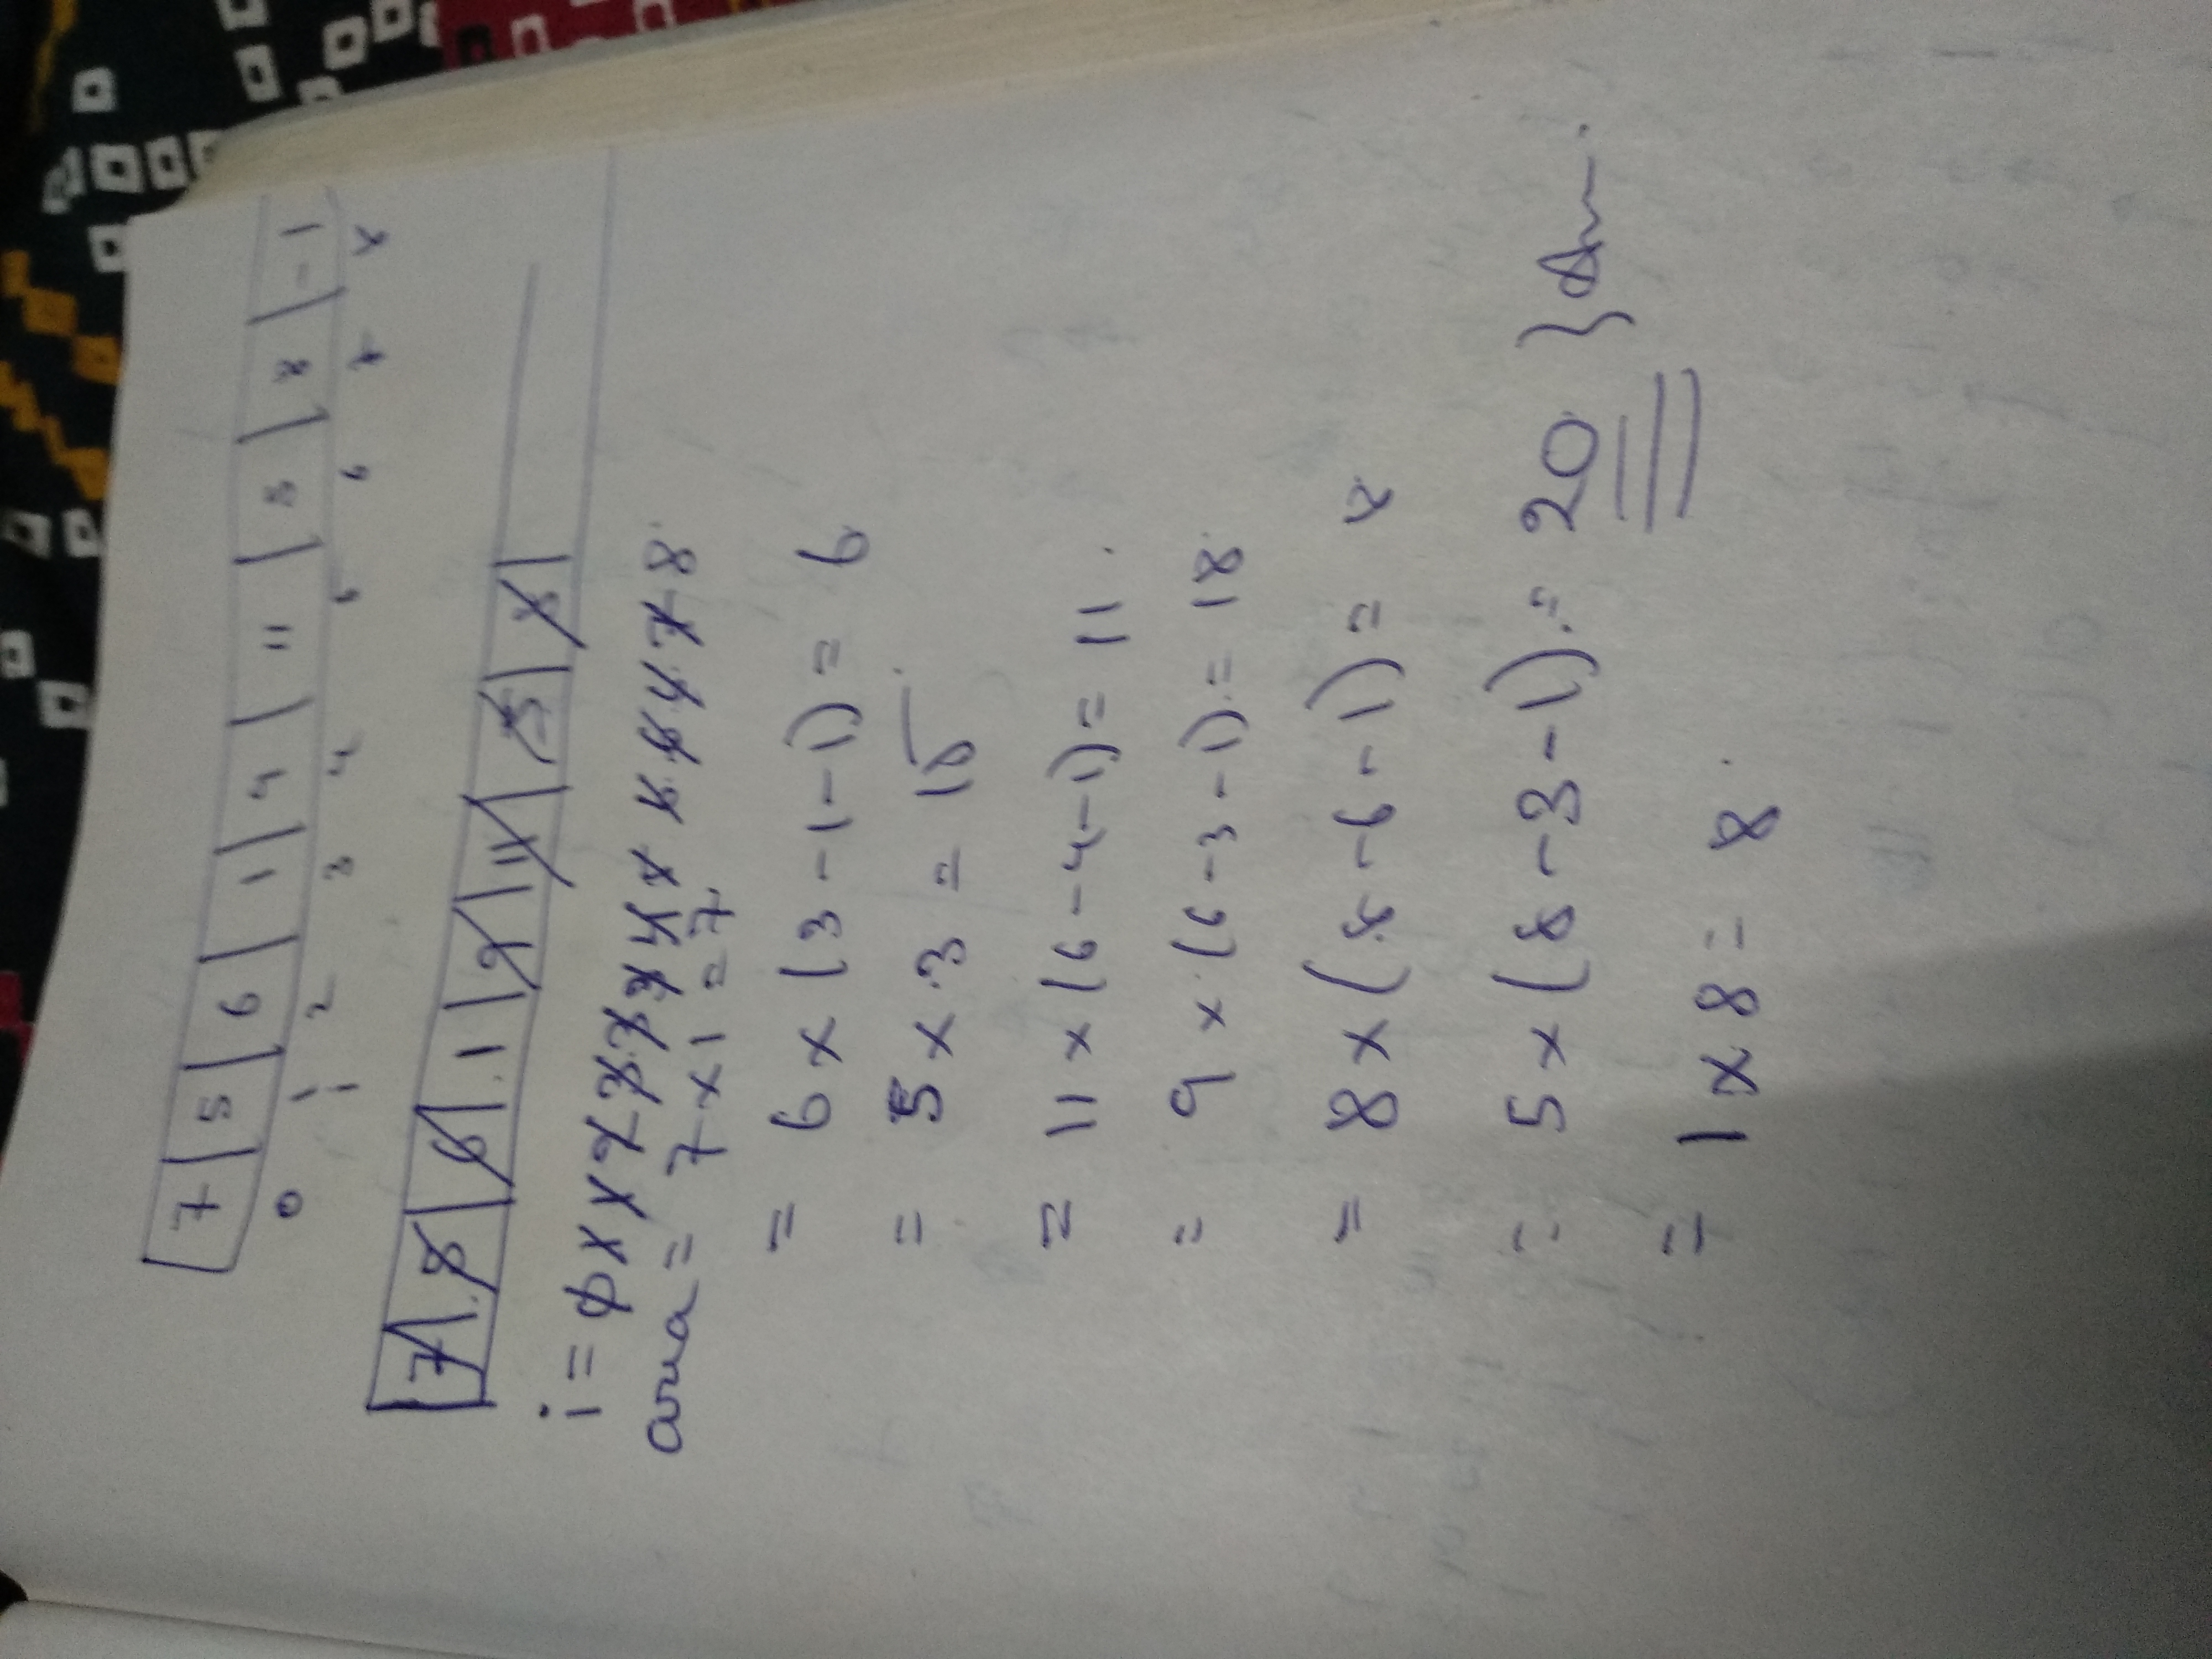 7 5 6 1 9 11 5 8 -1
0 1 2 3 4 5 6 7 8
i
7 5 6 1 9 11 5 8
i = 0 1 1 2 3 3 3 4 5 6 6 6 7 8
area = 7 x 1 = 7
= 6 x (3 - 1 - 1) = 6
= 5 x 3 = 15
= 11 x (6 - 4 - 1) = 11
= 9 x (6 - 3 - 1) = 18
= 8 x (8 - 6 - 1) = 8
= 5 x (8 - 3 - 1) = 20 } Ans.
= 1 x 8 = 8